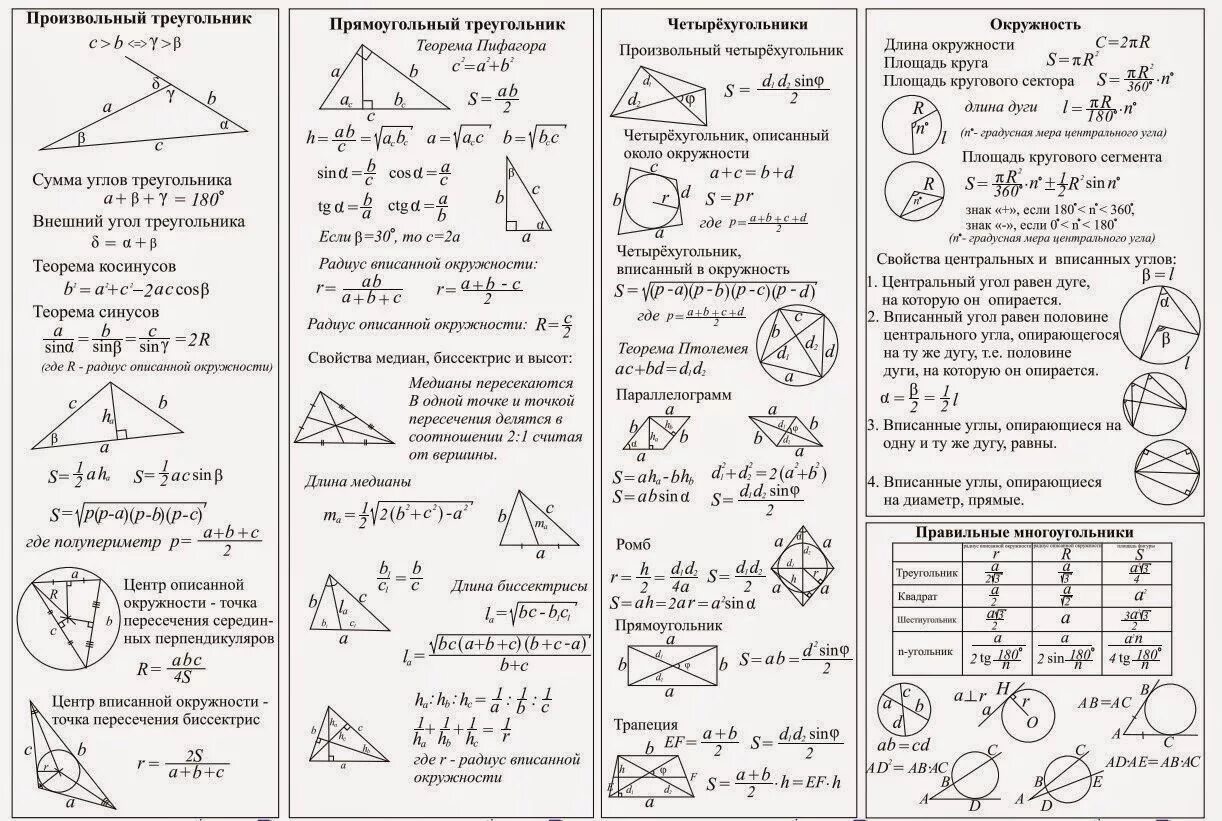 Произвольный треугольник
c > b <=> γ > β
δ
γ
a
b
β
α
c
Сумма углов треугольника
a + β + γ = 180°
Внешний угол треугольника
δ = α + β
Теорема косинусов
b² = a² + c² – 2ac cosβ
Теорема синусов
a/sinα = b/sinβ = c/sinγ = 2R
(где R - радиус описанной окружности)
c
hₐ
b
β
a
S = 1/2 ahₐ   S = 1/2 ac sin β
S = √(p(p-a)(p-b)(p-c))
где полупериметр p = (a+b+c)/2
a
R
c
b
Центр описанной
окружности - точка
пересечения середин-
ных перпендикуляров
R = abc/4S
Центр вписанной окружности -
точка пересечения биссектрис
c
b
r
a
r = 2S/(a+b+c)
Прямоугольный треугольник
Теорема Пифагора
c² = a² + b²
a
b
a_c
b_c
c
S = ab/2
h = ab/c = √(a_c b_c)   a = √(a_c c)   b = √(b_c c)
sin α = b/c   cos α = a/c
tg α = b/a   ctg α = a/b
β
c
b
α
a
Если β=30°, то c=2a
Радиус вписанной окружности:
r = ab/(a+b+c)   r = (a+b-c)/2
Радиус описанной окружности: R = c/2
Свойства медиан, биссектрис и высот:
Медианы пересекаются
В одной точке и точкой
пересечения делятся в
соотношении 2:1 считая
от вершины.
Длина медианы
mₐ = 1/2 √(2(b²+c²)-a²)
b
c
mₐ
a
b₁/c₁ = b/c
Длина биссектрисы
b
c
lₐ
b₁
c₁
a
lₐ = √(bc - b₁c₁)
lₐ = √(bc(a+b+c)(b+c-a))/(b+c)
hₐ:h_b:h_c = 1/a : 1/b : 1/c
1/hₐ + 1/h_b + 1/h_c = 1/r
где r - радиус вписанной
окружности
b
hₐ
c
h_c
h_b
a
Четырёхугольники
Произвольный четырёхугольник
d₁
d₂
φ
S = d₁d₂sinφ/2
Четырёхугольник, описанный
около окружности
a + c = b + d
c
b
d
r
a
S = pr
где p = (a+b+c+d)/2
Четырёхугольник,
вписанный в окружность
S = √((p-a)(p-b)(p-c)(p-d))
где p = (a+b+c+d)/2
c
b
d₂
d₁
d
a
Теорема Птолемея
ac + bd = d₁d₂
Параллелограмм
a
b
h_b
hₐ
b
α
a
a
b
d₁
φ
b
d₂
a
S = ahₐ - bh_b   d₁² + d₂² = 2(a² + b²)
S = ab sin α   S = d₁d₂sinφ/2
Ромб
r = h/2 = d₁d₂/4a   S = d₁d₂/2
S = ah = 2ar = a²sin α
a
α
a
d₂
d₁
h
r
a
a
Прямоугольник
a
b
d₁
φ
b
d₁
a
S = ab = d²sinφ/2
Трапеция
b
h
φ
E
F
d₁
d₂
a
EF = (a+b)/2   S = d₁d₂sinφ/2
S = (a+b)/2 · h = EF · h
Окружность
Длина окружности   C = 2πR
Площадь круга   S = πR²
Площадь кругового сектора   S = πR²/360° · n°
R
n°
l
длина дуги   l = πR/180° · n°
(n°- градусная мера центрального угла)
Площадь кругового сегмента
R
n°
S = πR²/360° · n° ± 1/2 R² sin n°
знак «+», если 180°< n°< 360°,
знак «-», если 0°< n°< 180°
(n°- градусная мера центрального угла)
Свойства центральных и вписанных углов:
1. Центральный угол равен дуге,
на которую он опирается.
2. Вписанный угол равен половине
центрального угла, опирающегося
на ту же дугу, т.е. половине
дуги, на которую он опирается.
α = β/2 = 1/2 l
β = l
α
β
l
3. Вписанные углы, опирающиеся на
одну и ту же дугу, равны.
4. Вписанные углы, опирающиеся
на диаметр, прямые.
Правильные многоугольники
радиус вписанной окружности r   радиус описанной окружности R   площадь фигуры S
Треугольник   a/2√3   a/√3   a²√3/4
Квадрат   a/2   a/√2   a²
Шестиугольник   a√3/2   a   3a²√3/2
n-угольник   a/(2 tg 180°/n)   a/(2 sin 180°/n)   a²n/(4 tg 180°/n)
c
a
b
d
ab = cd
a⊥r
H
a
r
O
AB = AC
B
A
C
AD² = AB·AC
C
B
A
D
AD·AE = AB·AC
C
B
E
A
D